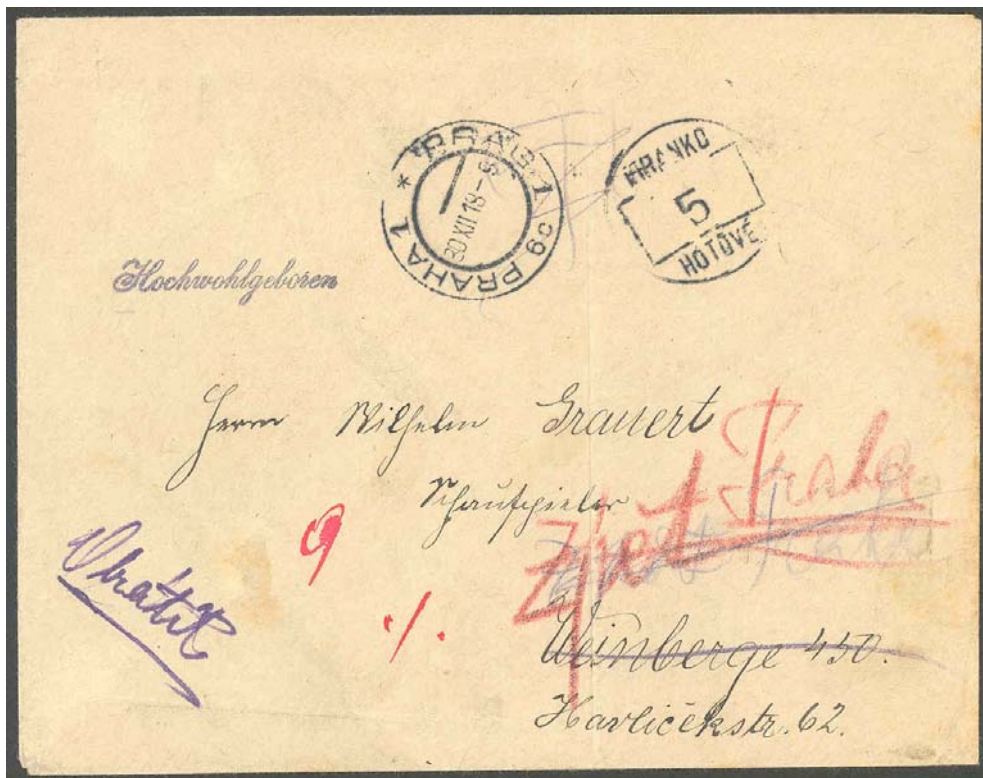 PRAG 1
30 XII 18 - 9
* PRAHA 1 6c
FRANKO
5
HOTOVĚ
Hochwohlgeboren
Herrn Wilhelm Grauert
Schauspieler
Zjist Praha
9
Vrátit
./.
Weinberge 450.
Havlíčekstr. 62.